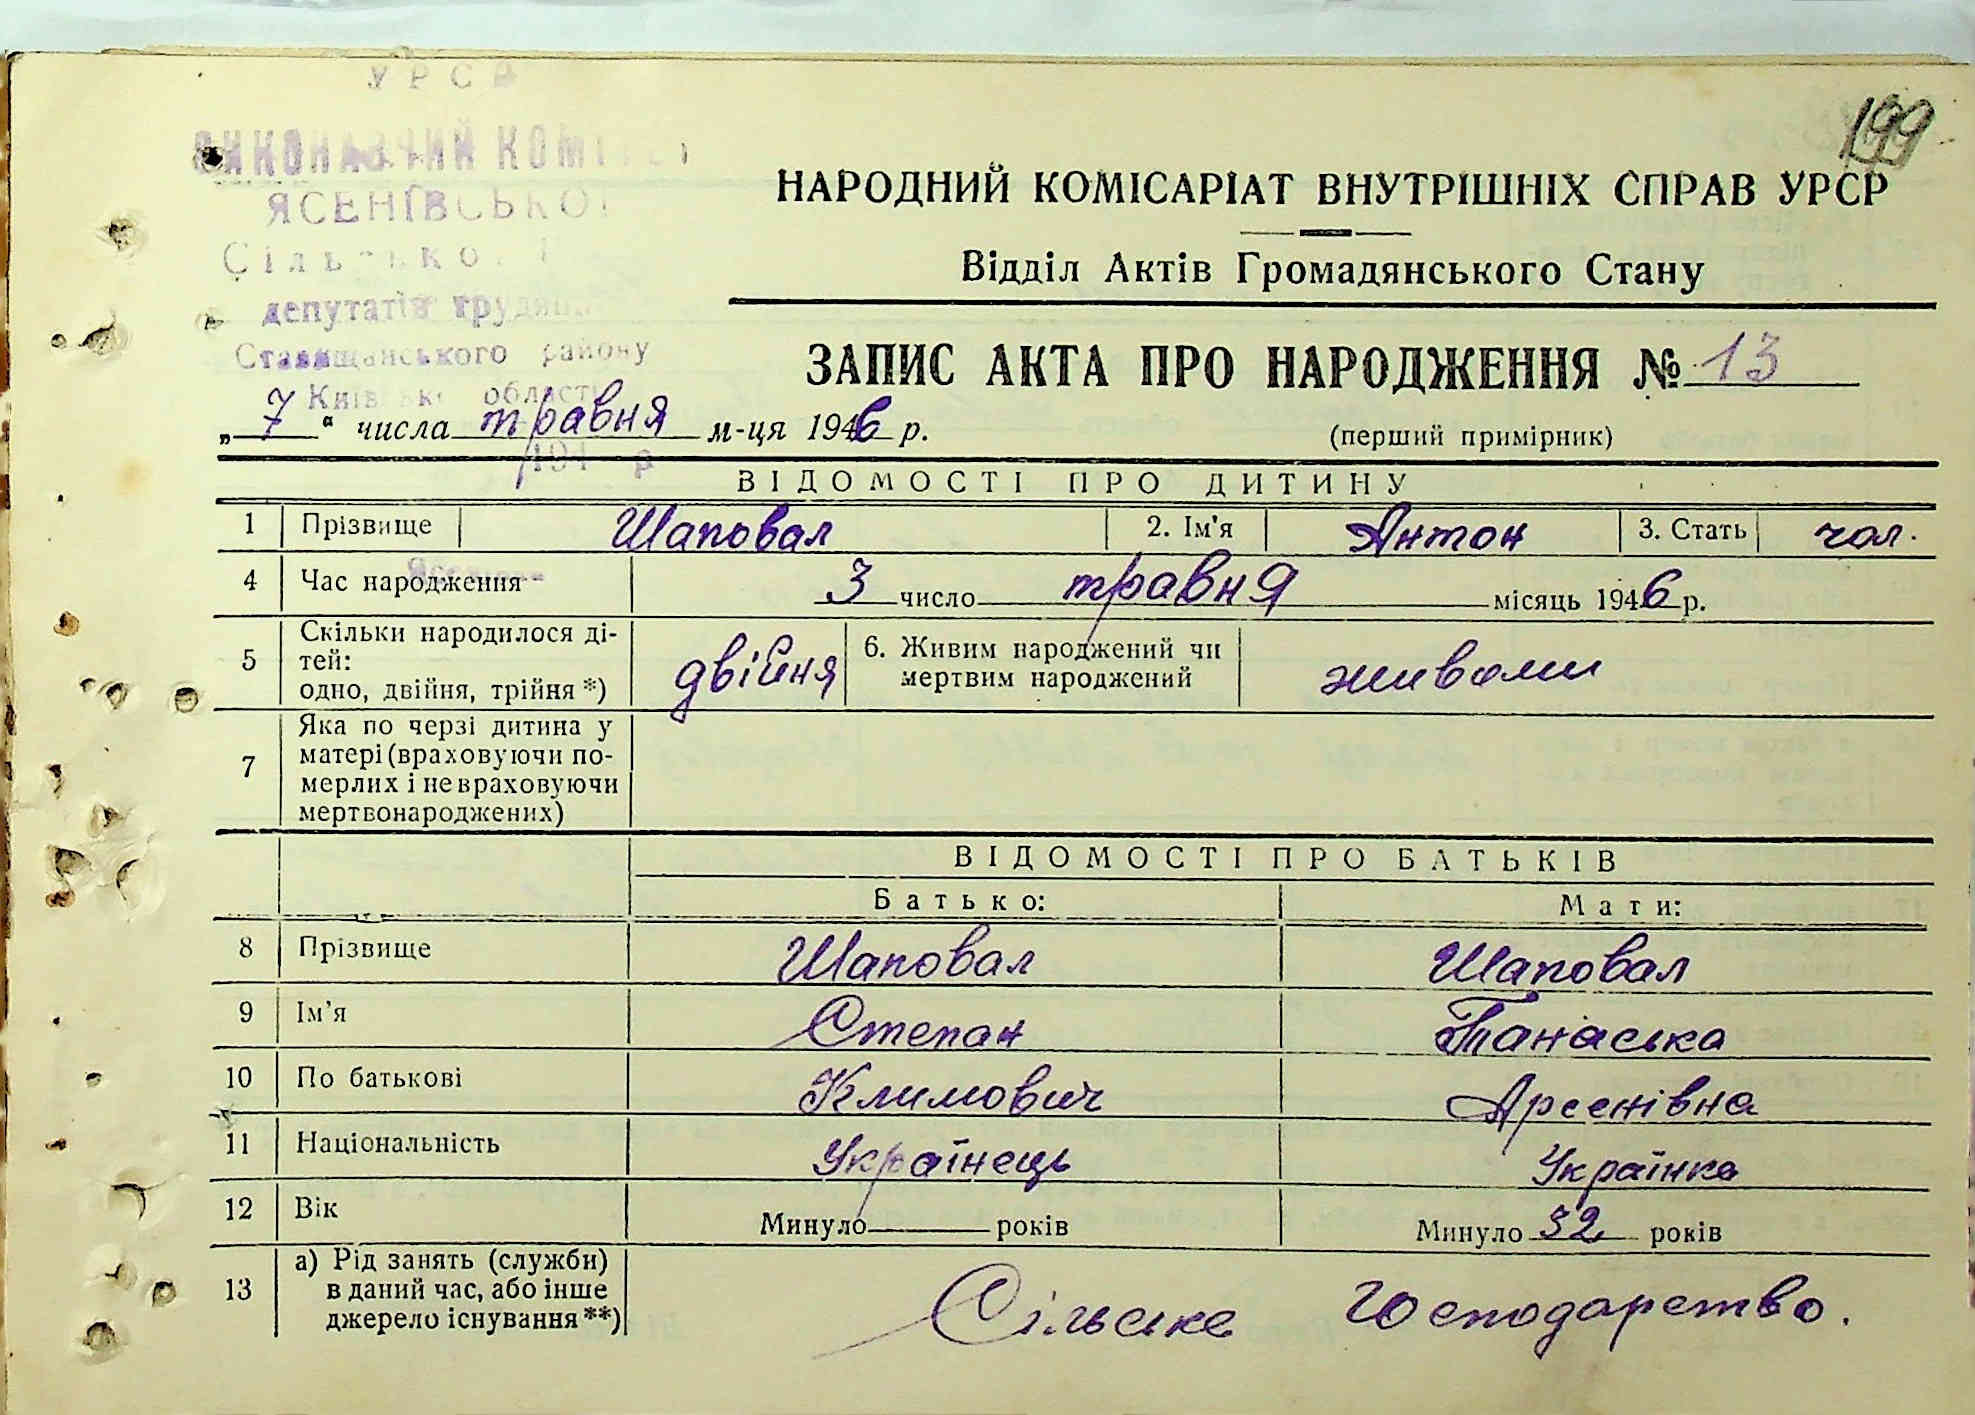 УРСР
ВИКОНАВЧИЙ КОМІТЕТ
ЯСЕНІВСЬКОЇ
Сільської
депутатів трудящих
Ставищанського району
Київської області
194 р
199
НАРОДНИЙ КОМІСАРІАТ ВНУТРІШНІХ СПРАВ УРСР
Відділ Актів Громадянського Стану
ЗАПИС АКТА ПРО НАРОДЖЕННЯ № 13
„7“ числа травня м-ця 1946 р.
(перший примірник)
ВІДОМОСТІ ПРО ДИТИНУ
1 Прізвище Шаповал 2. Ім'я Антон 3. Стать чол.
4 Час народження 3 число травня місяць 1946 р.
5 Скільки народилося ді-
тей:
одно, двійня, трійня *) двійня
6. Живим народжений чи
мертвим народжений живоми
7 Яка по черзі дитина у
матері (враховуючи по-
мерлих і не враховуючи
мертвонароджених)
ВІДОМОСТІ ПРО БАТЬКІВ
Батько: Мати:
8 Прізвище Шаповал Шаповал
9 Ім'я Степан Танаська
10 По батькові Климович Арсенівна
11 Національність Українець Українка
12 Вік Минуло років Минуло 32 років
13 а) Рід занять (служби)
в даний час, або інше
джерело існування **) Сільське Господарство.